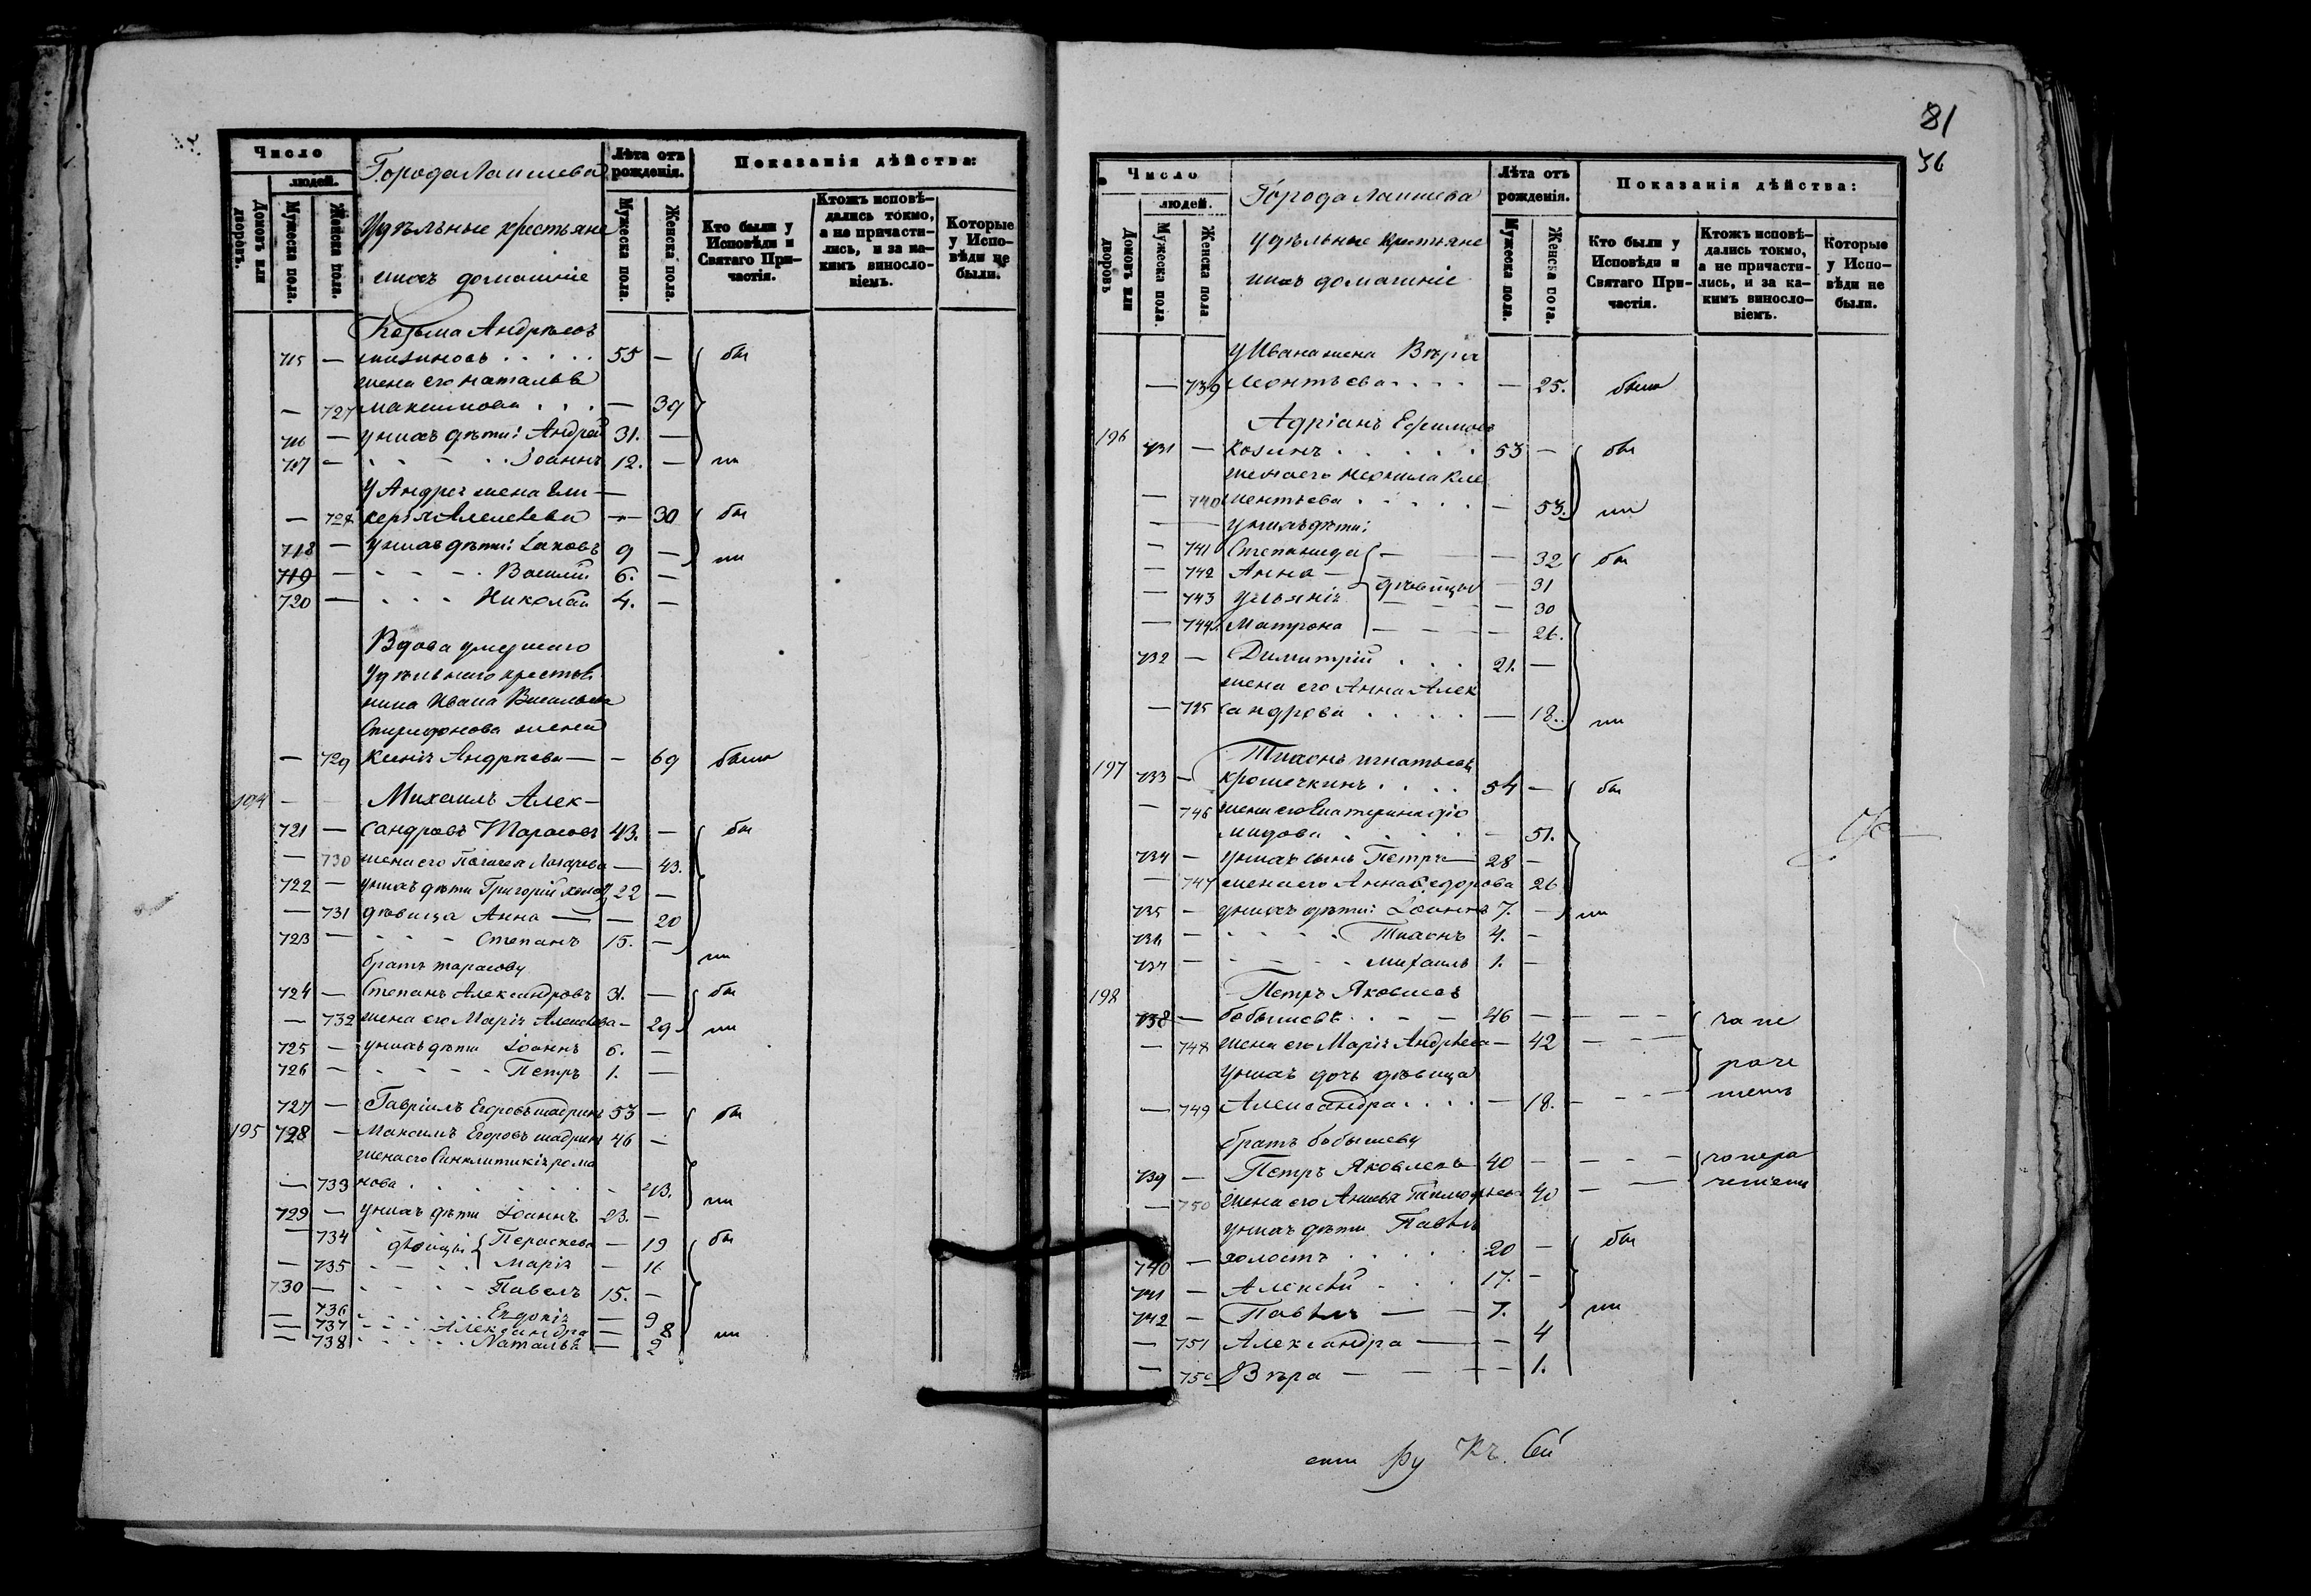 Число
людей.
Домовъ или дворовъ.
Мужеска пола.
Женска пола.
Города Лаишева
Удѣльные крестьяне
ихъ домашніе
Лѣта отъ рожденія.
Мужеска пола.
Женска пола.
Показанія дѣйства:
Кто были у Исповѣди и Святаго Причастія.
Ктожъ исповѣ-
дались токмо,
а не причасти-
лись, и за ка-
кимъ виносло-
віемъ.
Которые
у Испо-
вѣди не
были.
Козьма Андрѣевъ
715 — 55 — бы
жена его Наталья
— 727 Максимова . . . — 39
716 — у нихъ дѣти: Андрей 31. —
717 — Іоаннъ 12. — ли
У Андрея жена Гли-
— 728 керія Алексѣева — 30 бы
718 — у нихъ дѣти: Іаковъ 9 — ли
719 — Василій 6. —
720 — Николай 4. —
Вдова умершаго
Удѣльнаго крестья
нина Ивана Васильева
Спиридонова жена
— 729 Ксенія Андрѣева — — 69 была
194 — Михаилъ Алек-
721 — сандровъ Тарасовъ 43. — бы
— 730 жена его Пелагея Лазарева — 43.
722 — у нихъ дѣти Григорій холос 22 —
— 731 дѣвица Анна — — 20
723 — Степанъ 15. — ли
братъ Тарасову
724 — Степанъ Александровъ 31. — бы
— 732 жена его Марія Алексѣева — 29 ли
725 — у нихъ дѣти Іоаннъ 6. —
726 — Петръ 1. —
727 — Гавріилъ Егоровъ Шадринъ 53 — бы
195 728 — Максимъ Егоровъ Шадринъ 46 —
жена его Синклитикія Рома
— 733 нова . . . 43. ли
729 — у нихъ дѣти Іоаннъ 23. —
— 734 дѣвицы Параскева — 19 бы
— 735 Марія — 16
730 — Павелъ 15. —
— 736 Евдокія — 9
— 737 Александра — 8
— 738 Наталья — 2 ли
81
76
Число
людей.
Домовъ или дворовъ
Мужеска пола.
Женска пола
Города Лаишева
удѣльные крестьяне
ихъ домашніе
Лѣта отъ
рожденія.
Мужеска пола.
Женска пола.
Показанія дѣйства:
Кто были у
Исповѣди и
Святаго При-
частія.
Ктожъ исповѣ-
дались токмо,
а не причасти-
лись, и за ка-
кимъ виносло-
віемъ.
Которые
у Испо-
вѣди не
были.
У Ивана жена Вѣра
— 739 Леонтьева . . . . — 25. была
196 Адріанъ Ефимовъ
731 — Козинъ . . . . . 53 — бы
жена его Неонила Кле
— 740 ментьева . . . . — 53. ли
— — у нихъ дѣти:
— 741 Степанида — — 32 бы
— 742 Анна — дѣвицы — 31
— 743 Ульянія — 30
— 744 Матрона — — 26.
732 — Димитрій . . . 21. —
жена его Анна Алек
— 745 сандрова . . . . — 18. ли
197 Тихонъ Игнатьевъ
733 — Крошечкинъ . . . . 54 — бы
— 746 жена его Екатерина Діо
мидова . . . . — 51.
734 — у нихъ сынъ Петръ — 28 —
— 747 жена его Анна Ѳедорова 26
735 — у нихъ дѣти: Іоаннъ 7. — ли
736 — Тихонъ 4. —
737 — Михаилъ 1. —
198 Петръ Яковлевъ
738 — Бобышевъ . . — — 46 —
— 748 жена его Марія Андрѣева — 42
у нихъ дочь дѣвица
— 749 Александра . . . . — 18.
братъ Бобышеву
739 — Петръ Яковлевъ 40 —
— 750 жена его 40
у нихъ дѣти Павелъ
740 — холостъ . . . . . 20 — бы
741 — Алексѣй . . . 17. —
742 — Павелъ — — 7. ли
— 751 Александра — — 4
— 752 Вѣра — — — 1.